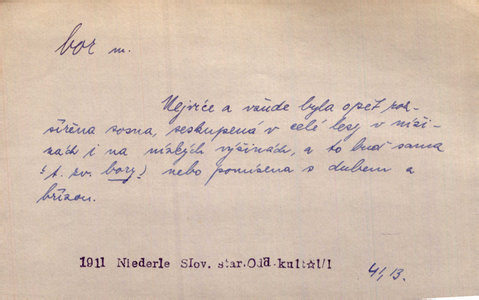 bor m.
Nejvíce a všude byla opět roz-
šířena sosna, seskupená v celé lesy v níži-
nách i na nízkých výšinách, a to buď sama
(t. zv. bory) nebo pomíšena s dubem a
břízou.
1911 Niederle Slov. star.Odd.kult☆1/1
41, 13.